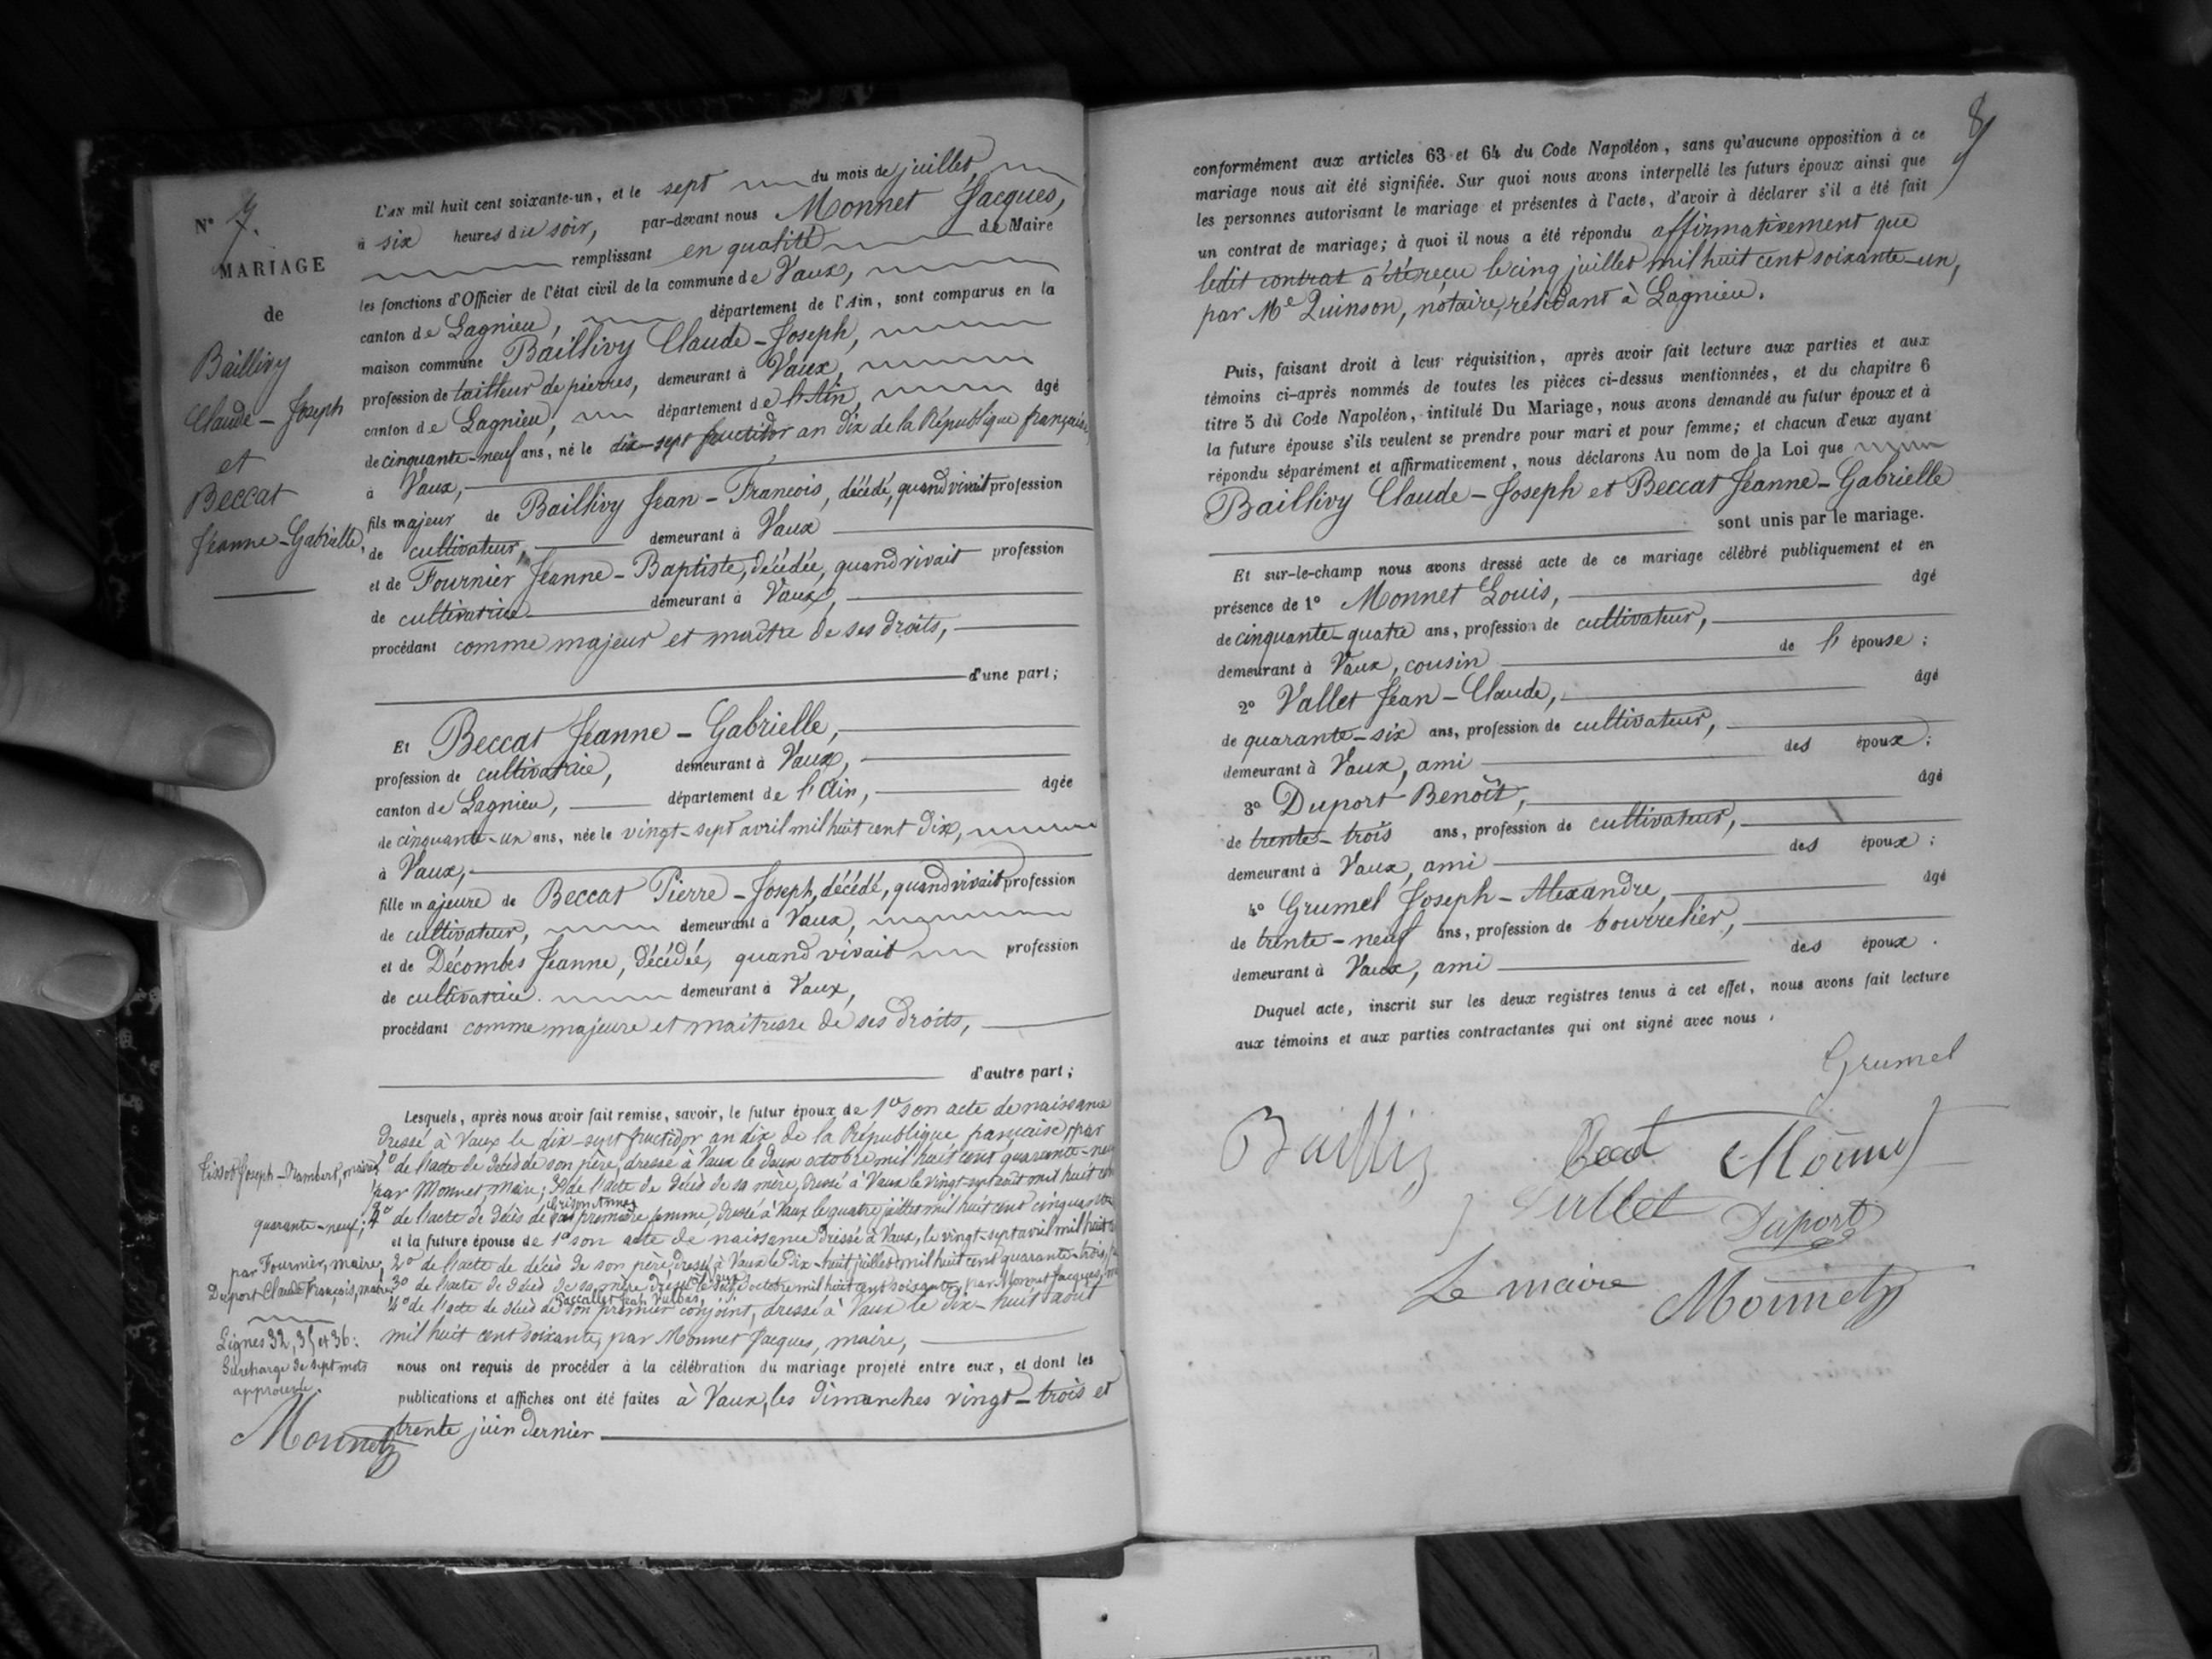 N° 7.
MARIAGE
de
Baillivy
Claude-Joseph
et
Beccat
Jeanne-Gabrielle,
L'AN mil huit cent soixante-un, et le sept du mois de juillet,
à six heures du soir, par-devant nous Monnet Jacques,
remplissant en qualité de Maire
les fonctions d'Officier de l'état civil de la commune de Vaux,
canton de Lagnieu, département de l'Ain, sont comparus en la
maison commune Baillivy Claude-Joseph,
profession de tailleur de pierres, demeurant à Vaux,
canton de Lagnieu, département de l'Ain, âgé
de cinquante-neuf ans, né le dix-sept fructidor an dix de la République française,
à Vaux,
fils majeur de Baillivy Jean-François, décédé, quand vivait profession
de cultivateur, demeurant à Vaux
et de Fournier Jeanne-Baptiste, décédée, quand vivait profession
de cultivatrice demeurant à Vaux,
procédant comme majeur et maître de ses droits,
d'une part;
Et Beccat Jeanne-Gabrielle,
profession de cultivatrice, demeurant à Vaux,
canton de Lagnieu, département de l'Ain, âgée
de cinquante-un ans, née le vingt-sept avril mil huit cent dix,
à Vaux,
fille majeure de Beccat Pierre-Joseph, décédé, quand vivait profession
de cultivateur, demeurant à Vaux,
et de Décombes Jeanne, décédée, quand vivait profession
de cultivatrice. demeurant à Vaux,
procédant comme majeure et maitresse de ses droits,
d'autre part;
Lesquels, après nous avoir fait remise, savoir, le futur époux de 1° son acte de naissance
dressé à Vaux le dix-sept fructidor an dix de la République française, par
Tissot Joseph-Rambert, maire; 2° de l'acte de décès de son père, dressé à Vaux le deux octobre mil huit cent quarante-neuf
par Monnet, Maire; 3° de l'acte de décès de sa mère, dressé à Vaux le vingt-sept août mil huit cent
quarante-neuf; 4° de l'acte de décès de Grison Anne, première femme, dressé à Vaux le quatre juillet mil huit cent cinquante
et la future épouse de 1° son acte de naissance dressé à Vaux, le vingt-sept avril mil huit
par Fournier, maire, 2° de l'acte de décès de son père, dressé à Vaux le dix-huit juillet mil huit cent quarante-trois,
Duport Claude François, maire 3° de l'acte de décès de sa mère dressé octobre mil huit cent soixante, par Monnet Jacques,
4° de l'acte de décès de son premier conjoint, dressé à Vaux le dix-huit août
mil huit cent soixante, par Monnet Jacques, maire,
Lignes 32, 35 et 36:
Surcharge de sept mots
approuvée.
Monnet
nous ont requis de procéder à la célébration du mariage projeté entre eux, et dont les
publications et affiches ont été faites à Vaux, les dimanches vingt-trois et
trente juin dernier
8
conformément aux articles 63 et 64 du Code Napoléon, sans qu'aucune opposition à ce
mariage nous ait été signifiée. Sur quoi nous avons interpellé les futurs époux ainsi que
les personnes autorisant le mariage et présentes à l'acte, d'avoir à déclarer s'il a été fait
un contrat de mariage; à quoi il nous a été répondu affirmativement que
ledit contrat a été reçu le cinq juillet mil huit cent soixante-un,
par Me Quinson, notaire, résidant à Lagnieu.
Puis, faisant droit à leur réquisition, après avoir fait lecture aux parties et aux
témoins ci-après nommés de toutes les pièces ci-dessus mentionnées, et du chapitre 6
titre 5 du Code Napoléon, intitulé Du Mariage, nous avons demandé au futur époux et à
la future épouse s'ils veulent se prendre pour mari et pour femme; et chacun d'eux ayant
répondu séparément et affirmativement, nous déclarons Au nom de la Loi que
Baillivy Claude-Joseph et Beccat Jeanne-Gabrielle
sont unis par le mariage.
Et sur-le-champ nous avons dressé acte de ce mariage célébré publiquement et en
présence de 1° Monnet Louis, âgé
de cinquante-quatre ans, profession de cultivateur,
demeurant à Vaux, cousin de l'épouse;
2° Vallet Jean-Claude, âgé
de quarante-six ans, profession de cultivateur,
demeurant à Vaux, ami des époux;
3° Duport Benoît, âgé
de trente-trois ans, profession de cultivateur,
demeurant à Vaux, ami des époux;
4° Grumel Joseph-Alexandre, âgé
de trente-neuf ans, profession de bourrelier,
demeurant à Vaux, ami des époux.
Duquel acte, inscrit sur les deux registres tenus à cet effet, nous avons fait lecture
aux témoins et aux parties contractantes qui ont signé avec nous.
Grumel
Monnet
Vallet Duport
Le maire Monnet